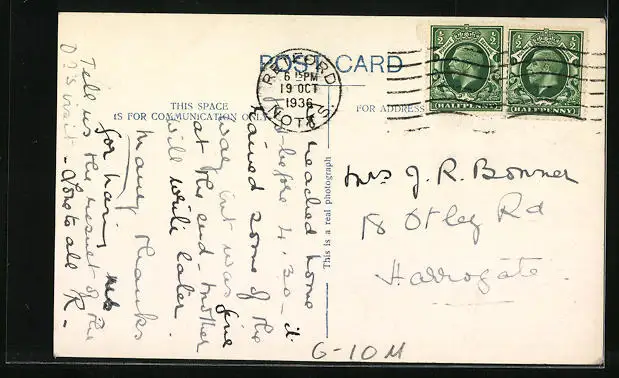 POST CARD
THIS SPACE
IS FOR COMMUNICATION ONLY
FOR ADDRESS
This is a real photograph
RETFORD
6 15 PM
19 OCT
1936
NOTTS
HALFPENNY
HALFPENNY
reached home
before 4.30 - it
rained some of the
way but was fine
at the end - Mother
will write later.
Many thanks
for having us
Tell us the result of the
Drs visit - Love to all R -
Mrs J. R. Bonner
18 Otley Rd
Harrogate.
G-10M